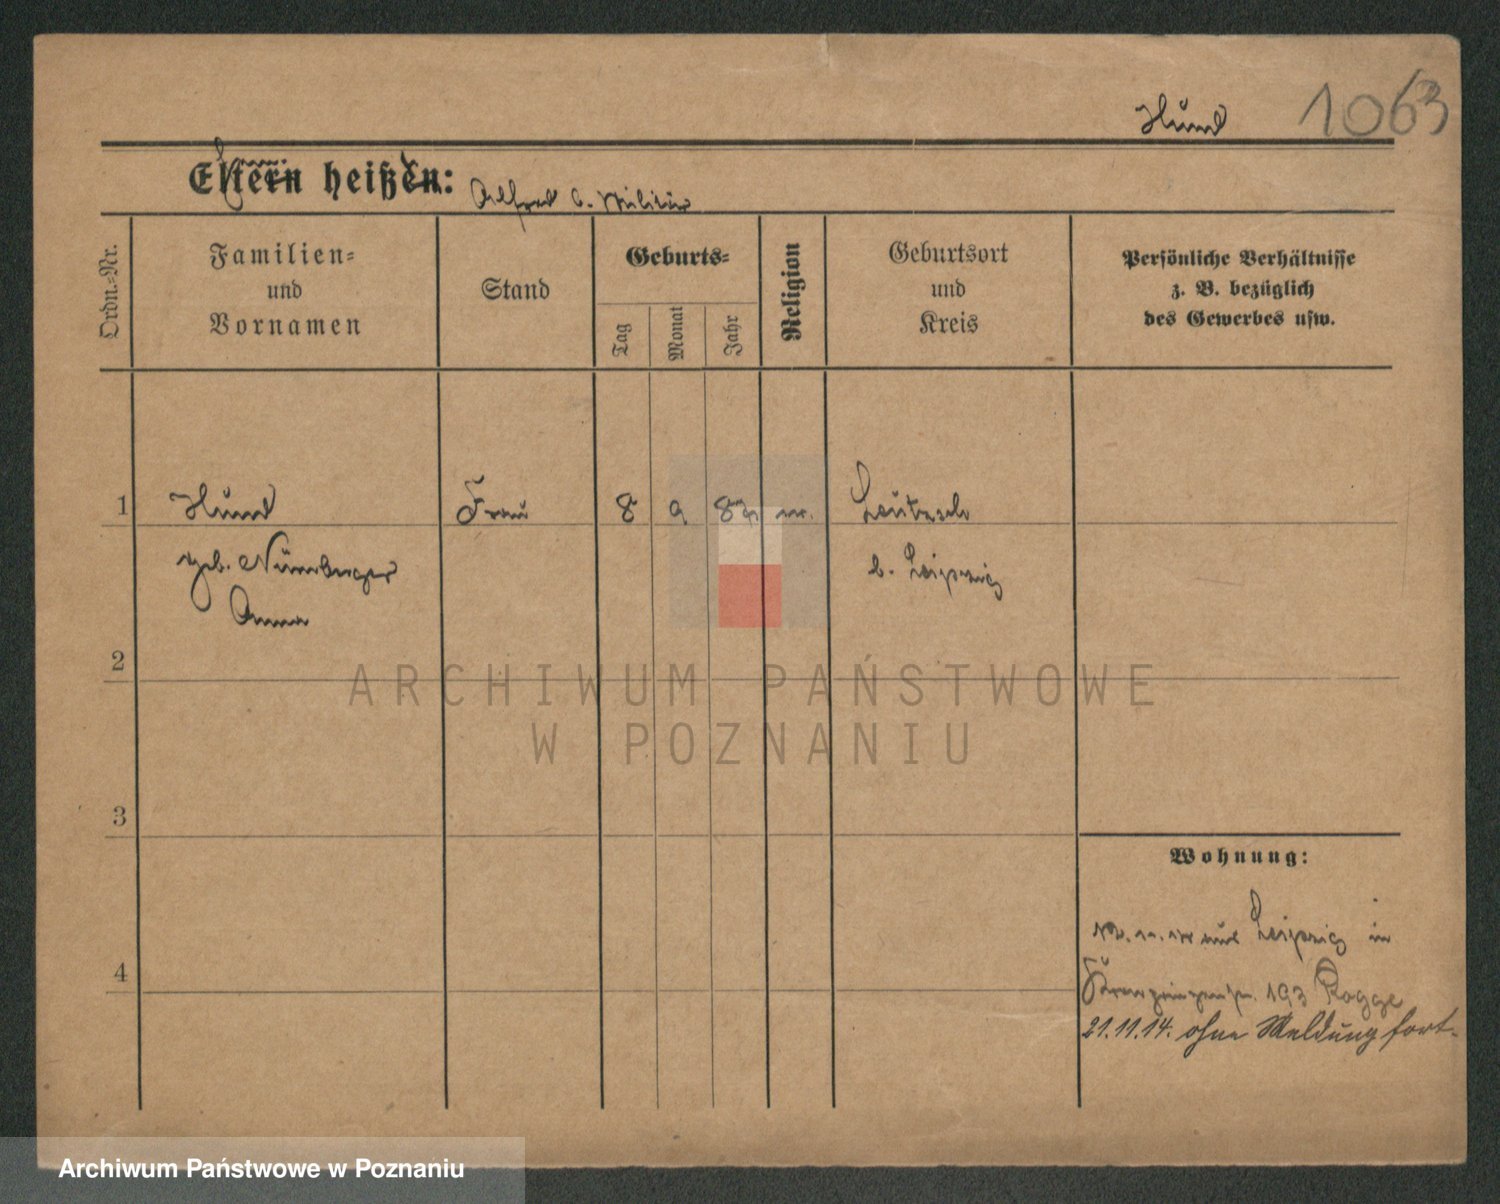 Hund 1063
Eltern heißen: Alfred b. Militär
Ordn.-Nr.
Familien-
und
Vornamen
Stand
Geburts-
Tag
Monat
Jahr
Religion
Geburtsort
und
Kreis
Persönliche Verhältnisse
z. B. bezüglich
des Gewerbes usw.
1 Hund Frau 8 9 Leutzsch
geb. Nürnberger b. Leipzig
Anna
2
ARCHIWUM PAŃSTWOWE
W POZNANIU
3
Wohnung:
aus Leipzig in
4
193 Rogge
21.11.14. ohne Meldung fort.
Archiwum Państwowe w Poznaniu